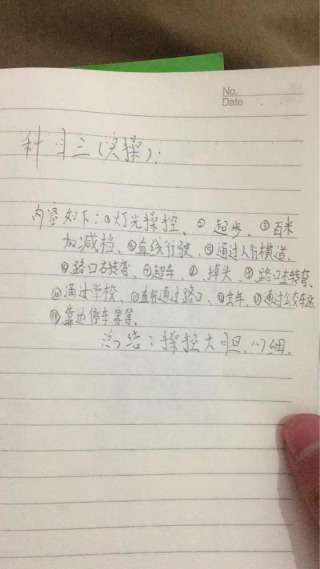 No.
Date
科目三(实操):
内容如下:①灯光操控、②起步、③百米
加减档、④直线行驶、⑤通过人行横道、
⑥路口右转弯、⑦超车、⑧掉头、⑨路口左转弯、
⑩通过学校、⑪直行通过路口、⑫会车、⑬通过公交车站
⑭靠边停车等等。
总结:操控大胆、心细.